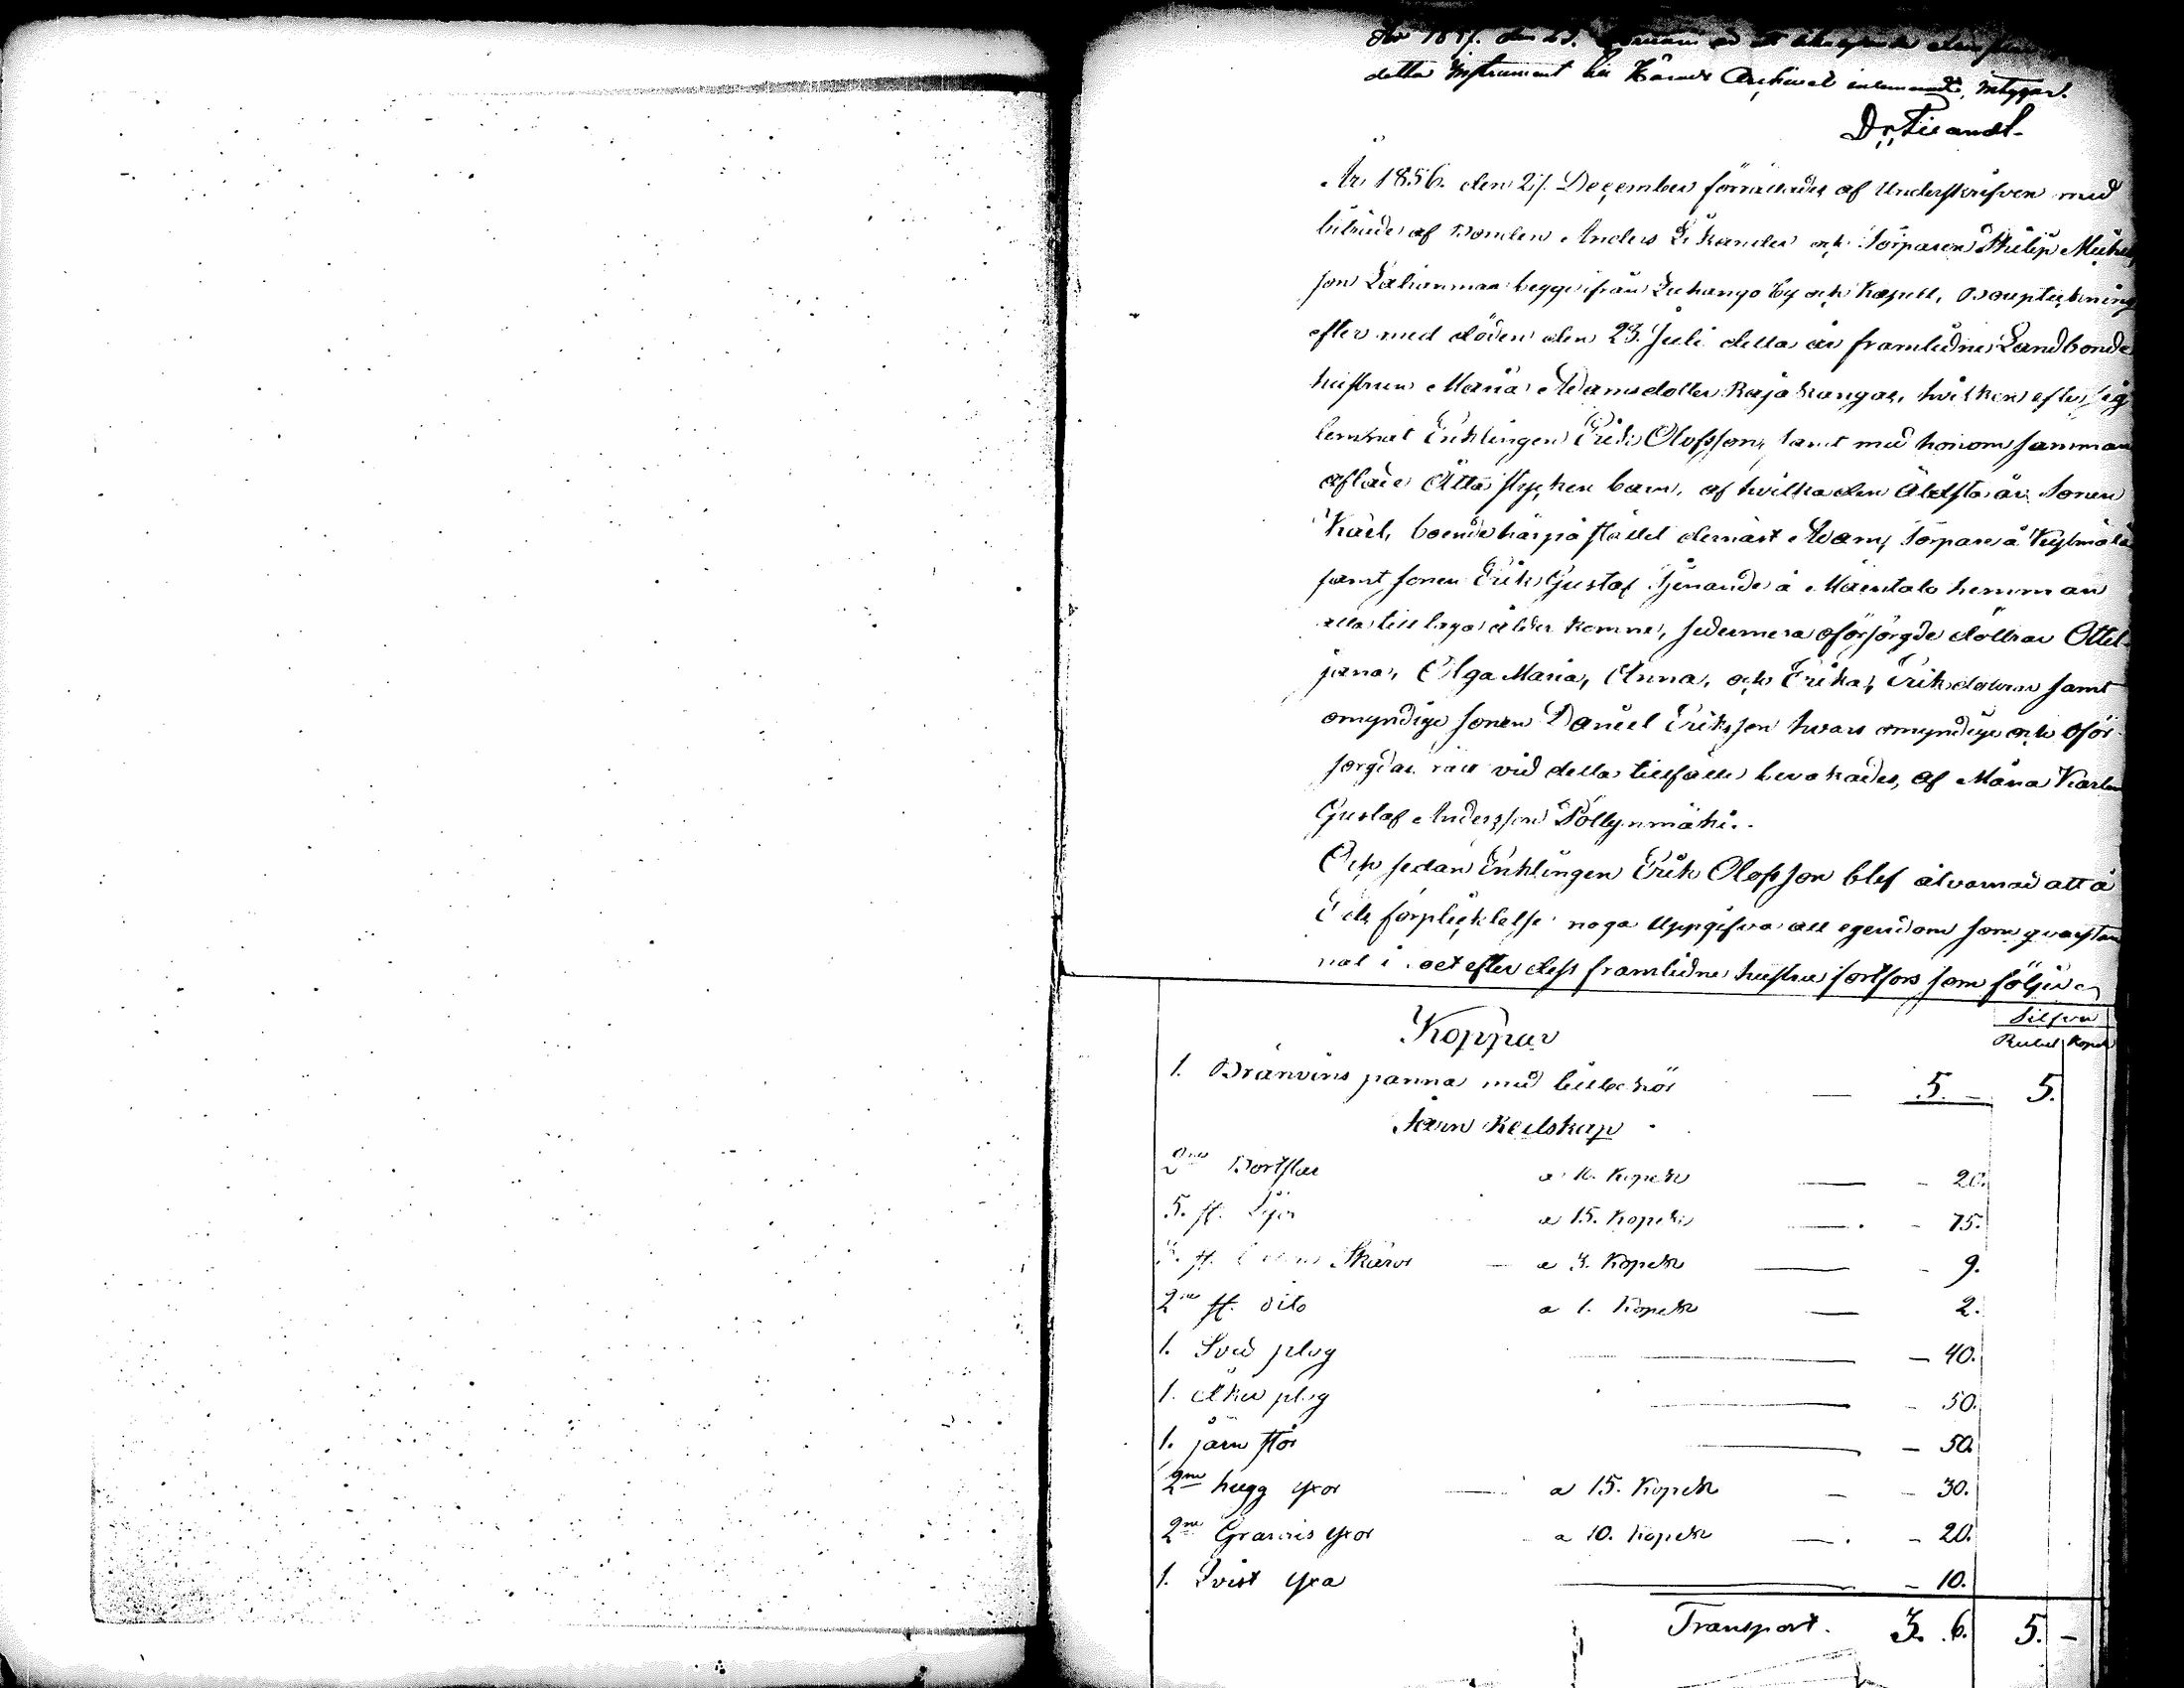 detta Instrument för Härads Archivet inlemnadt, intygar.
År 1856. den 27 December förrättades af Underskrifven med
biträde af Bonden Anders Zikander och Torparen Philip Mickels
son Lahinmaa begge ifrån Luhango by och Kapell, Bouptekning
efter med döden den 23. Juli detta år framlidne Landbonde
hustrun Maria Adamsdotter Rajakangas, hvilken efter sig
lemnat Enklingen Erik Olofsson, samt med honom samman
aflade Åtta stycken barn, af hvilka den Äldsta är Sonen
Karl, boende här på stället dernäst Adam, Torpare å Kylmälä
samt sonen Erik Gustaf tjenande å Mäentalo hemman
alla till laga ålder komne, sedermera oförsörgde döttrar Ottil-
jana, Olga Maria, Anna, och Erika, Eriksdöttrar samt
omyndige sonen Daniel Eriksson hvars omyndige och oför-
sörgdas rätt vid detta tillfälle bevakades, af Måna Karlen
Gustaf Andersson Pöllynmäki.
Och sedan Enklingen Erik Olofsson blef åtvarnad att å
Eds förpliktelse noga Uppgifva all egendom som qvarstan
nat i boet efter dess framlidne hustru fortfors som följer
Silfver
Koppar Rubel Kopek
1. Bränvins panna med tillbehör — 5. — 5.
Järn Redskap
2ne Bortslar a 10. Kopek — - 20.
5. st. Lijor a 15. Kopek — - 75.
3. st. Skäror — a 3. Kopek — - 9.
2ne st. dito a 1. Kopek — 2.
1. Sved plog — - 40.
1. Åker plog — - 50.
1. järn stör — - 50.
2ne hugg yxor — a 15. Kopek — - 30.
2ne yxor a 10. Kopek — - 20.
1. Qvist yxa — - 10.
Transport. 3. 6. 5. -